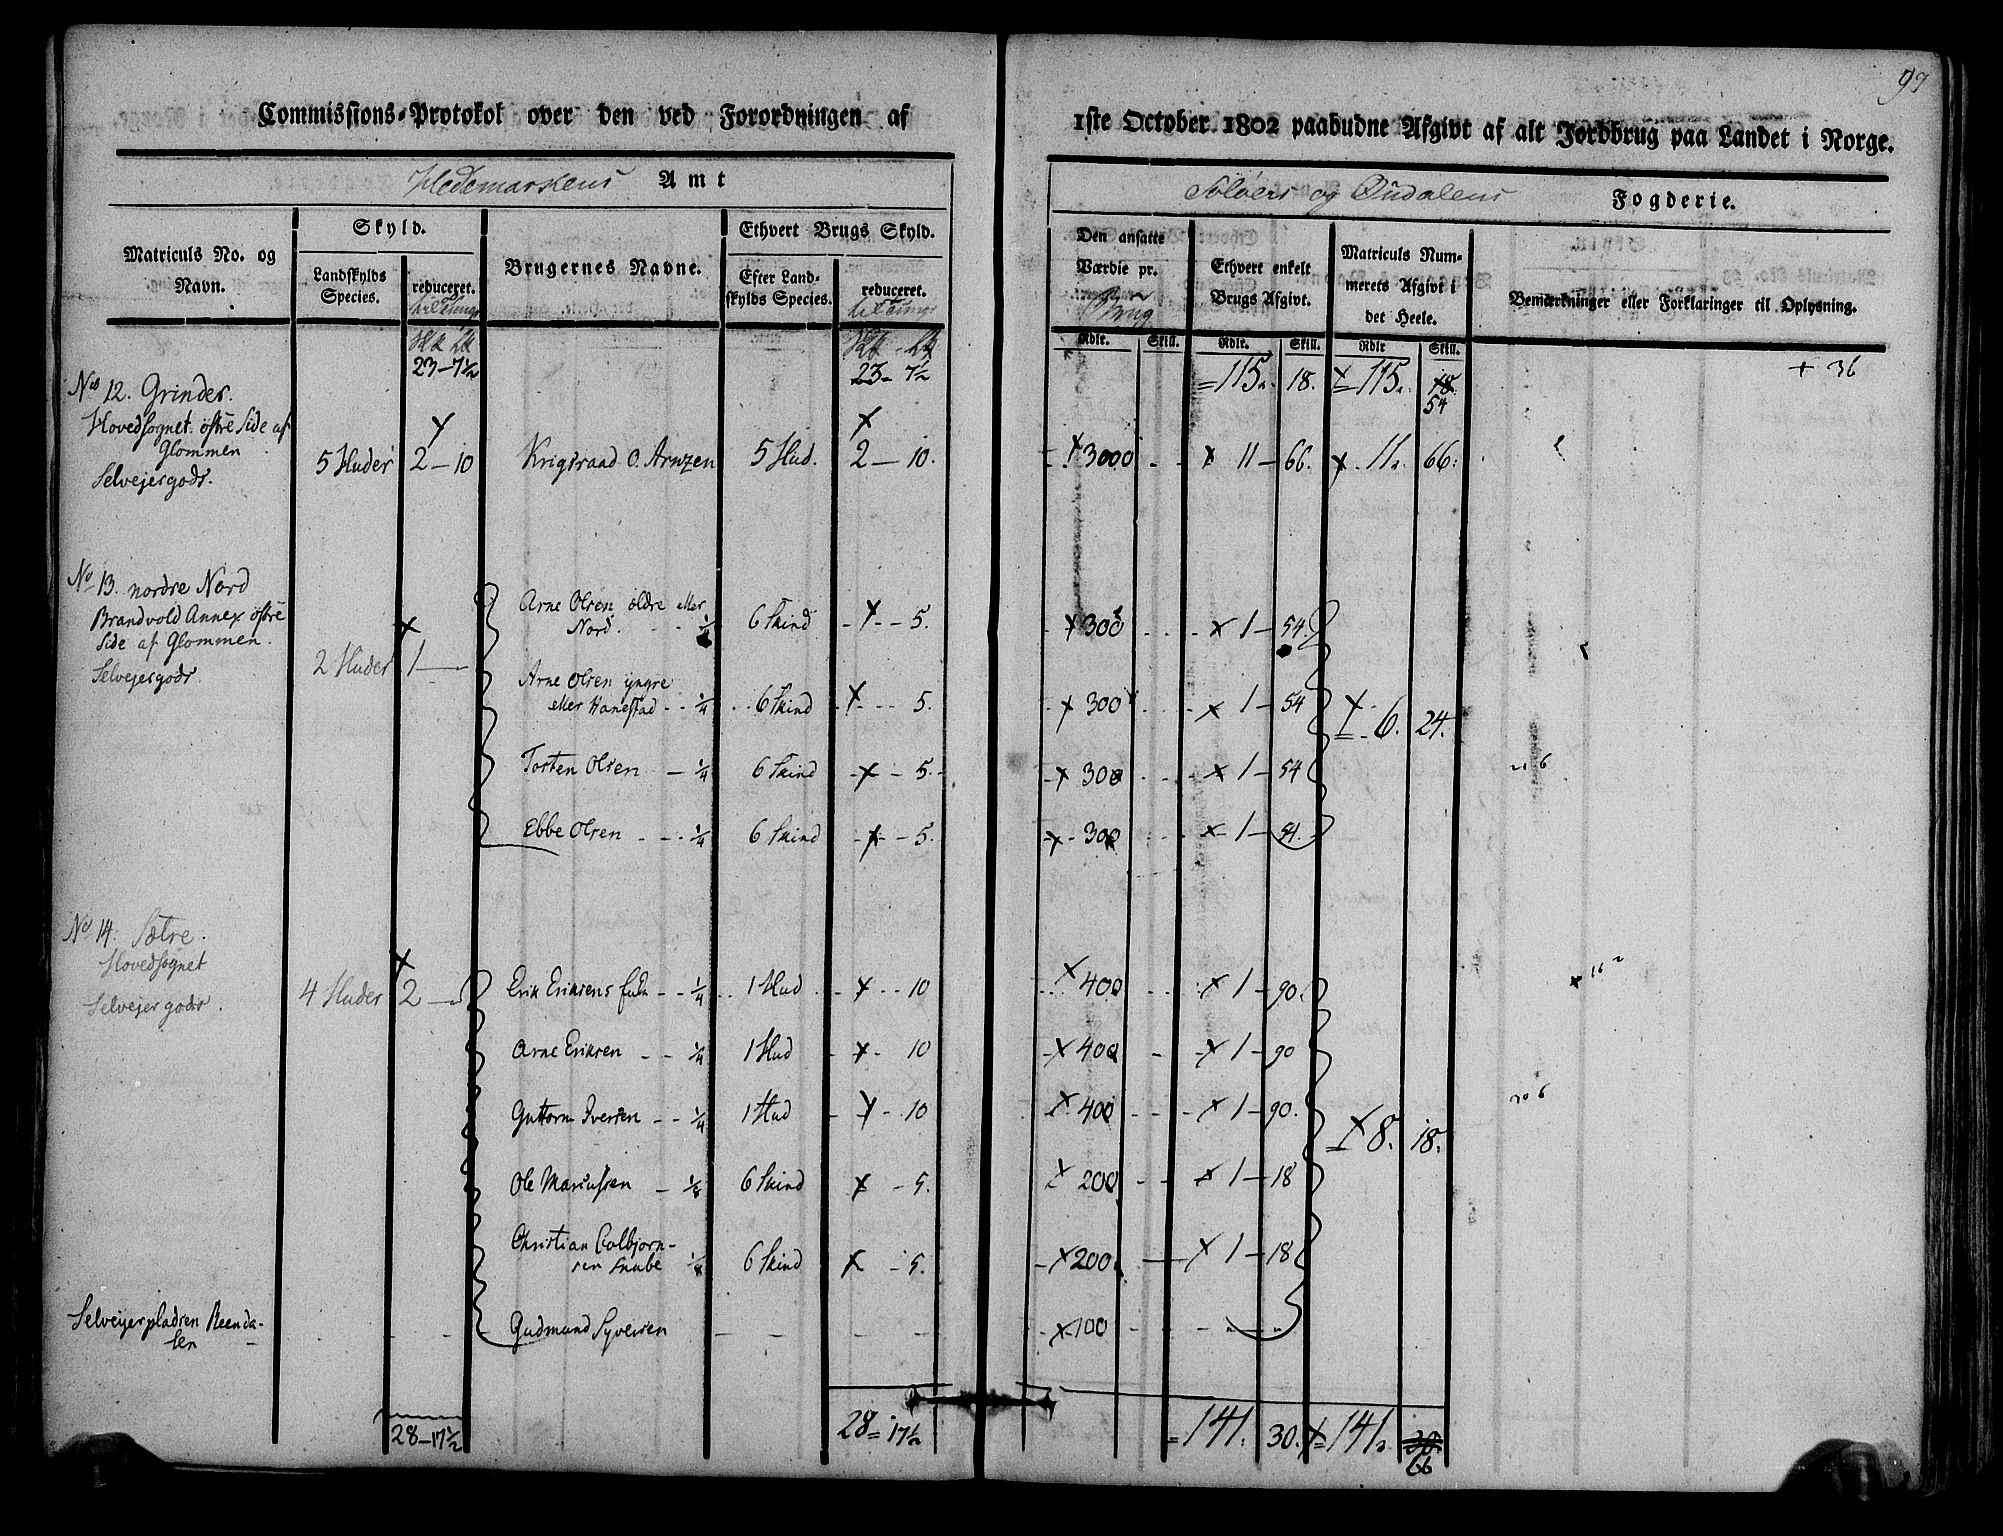 97
Commissions-Protokol over den ved Forordningen af 1ste October 1802 paabudne Afgivt af alt Jordbrug paa Landet i Norge.
Hedemarkens Amt
Soløers og Oudalens Fogderie.
Matriculs No. og Navn.
Skyld.
Landskylds Species.
reduceret.
Brugernes Navne.
Ethvert Brugs Skyld.
Efter Landskylds Species.
reduceret.
Den ansatte Værdie pr. Brug
Ethvert enkelt Brugs Afgivt.
Matriculs Nummerets Afgivt i det Heele.
Bemærkninger eller Forklaringer til Oplysning.
Rdlr. Skill. Rdlr. Skill. Rdlr Skill.
23 - 7½ 23 - 7½ = 115. 18. x = 115. 18. + 36
54
No 12. Grinder.
Hovedsognet östre Side af
Glommen
Selvejergods.
5 Huder 2 - 10 Krigsraad O. Arntzen 5 Hud. 2 - 10. x 3000 x 11 - 66. x 11. 66.
No 13. nordre Nord
Brandvold Annex östre
Side af Glommen.
Selvejergods.
2 Huder 1 -
Arne Olsen ældre eller
Nord. ¼ 6 Skind x - 5. x 300 x 1 - 54.
Arne Olsen yngre
eller Hanestad - ¼ 6 Skind x - 5. x 300 x 1 - 54 x 6. 24.
Torsten Olsen - ¼ 6 Skind x - 5. x 300 x 1 - 54
Ebbe Olsen - ¼ 6 Skind x - 5. x 300 x 1 - 54.
No 14. Sætre.
Hovedsognet
Selvejergods.
4 Huder 2 -
Erik Eriksens Enke - ¼ 1 Hud x - 10 x 400 x 1 - 90.
Arne Eriksen - ¼ 1 Hud x - 10 x 400 x 1 - 90
Guttorm Iversen - ¼ 1 Hud x - 10 x 400 x 1 - 90. x 8. 18.
Ole Mariussen - ⅛ 6 Skind x - 5. x 200 x 1 - 18
Christian Colbjorn-
sen Snabe ⅛ 6 Skind x - 5. x 200 x 1 - 18
Selveyerpladsen Reenda-
len
Gudmund Syversen - - - x 100
28 - 17½ 28 = 17½ = 141. 30. x = 141. 30.
66